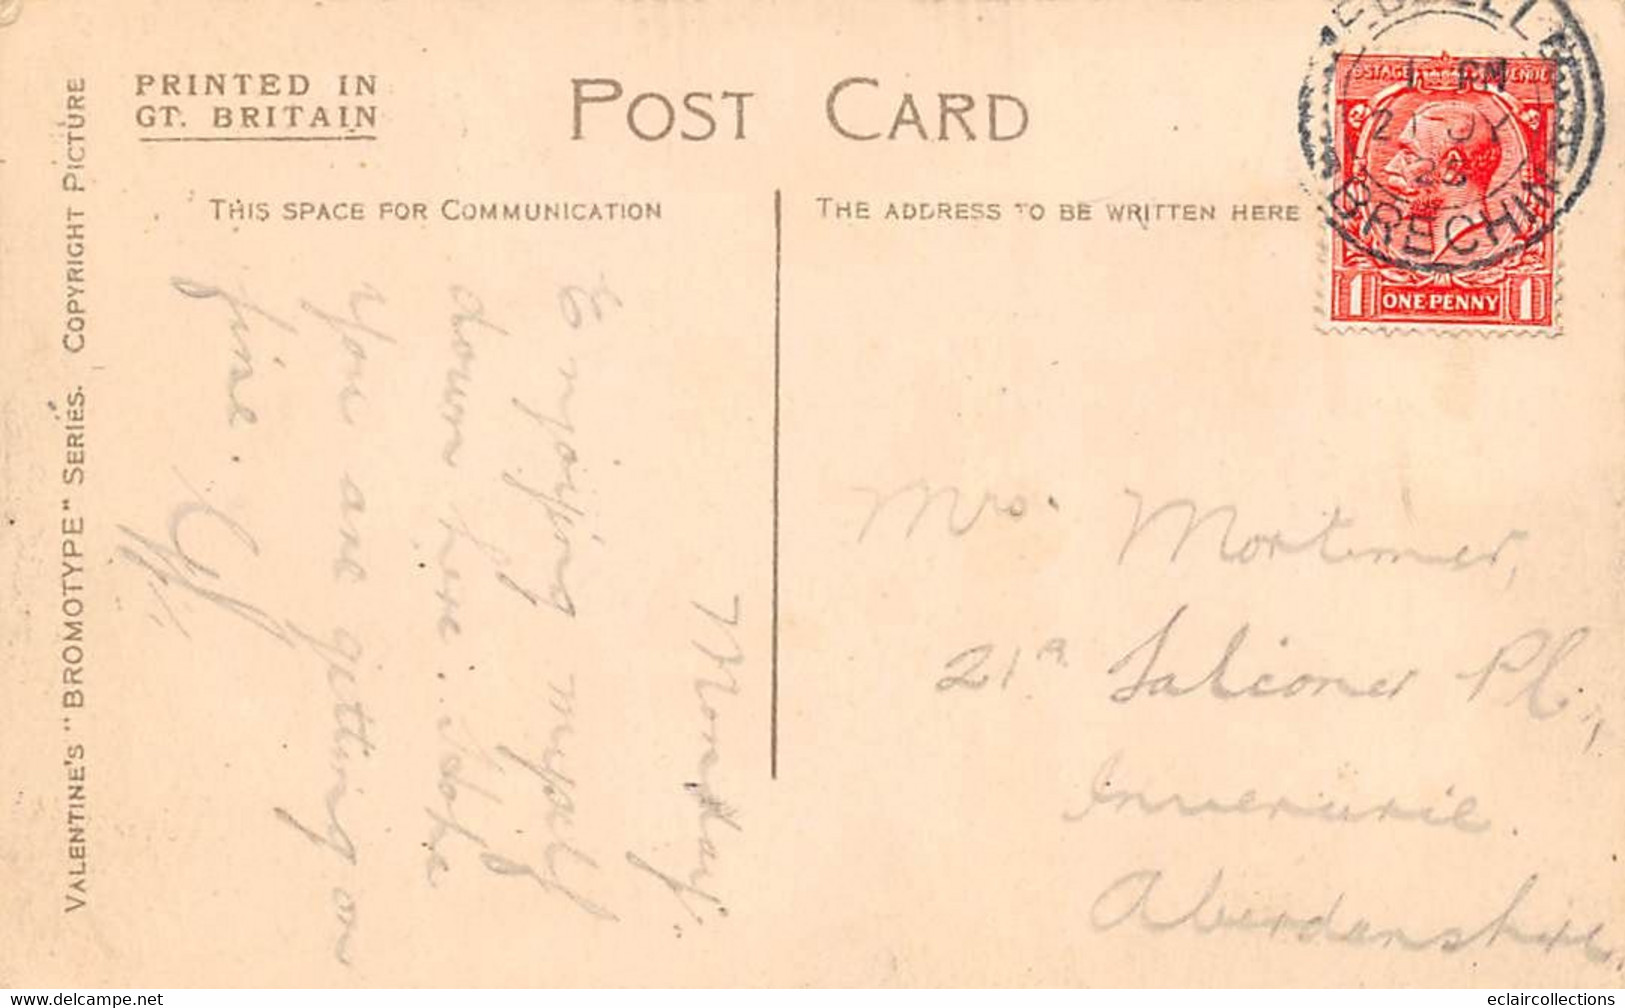 PRINTED IN
GT. BRITAIN
POST CARD
THIS SPACE FOR COMMUNICATION
THE ADDRESS TO BE WRITTEN HERE
VALENTINE'S "BROMOTYPE" SERIES. COPYRIGHT PICTURE
Monday
Enjoying myself
down here. Hope
you are getting on
fine.
Mrs. Mortimer,
21a Falconer Pl.,
Inverurie
Aberdenshire
EDZELL
1 PM
BRECHIN
POSTAGE REVENUE
1 ONE PENNY 1
eclaircollections